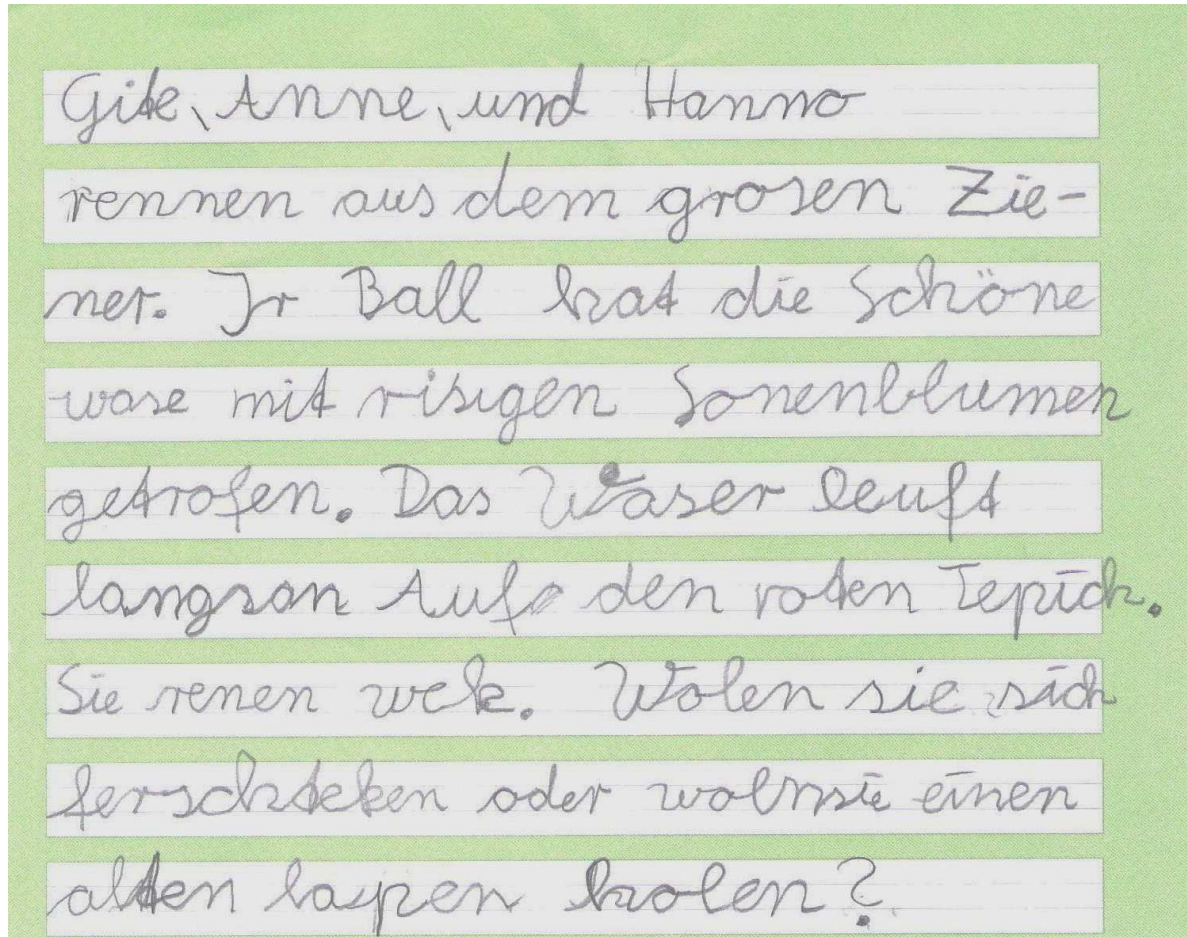 Gite, Anne, und Hanno
rennen aus dem grosen Zie-
ner. Ir Ball hat die Schöne
wase mit risigen Sonenblumen
getrofen. Das Waser leuft
langsan Auf den roten Tepich.
Sie renen wek. Wolen sie sich
ferschteken oder wolnsie einen
alten lapen holen?